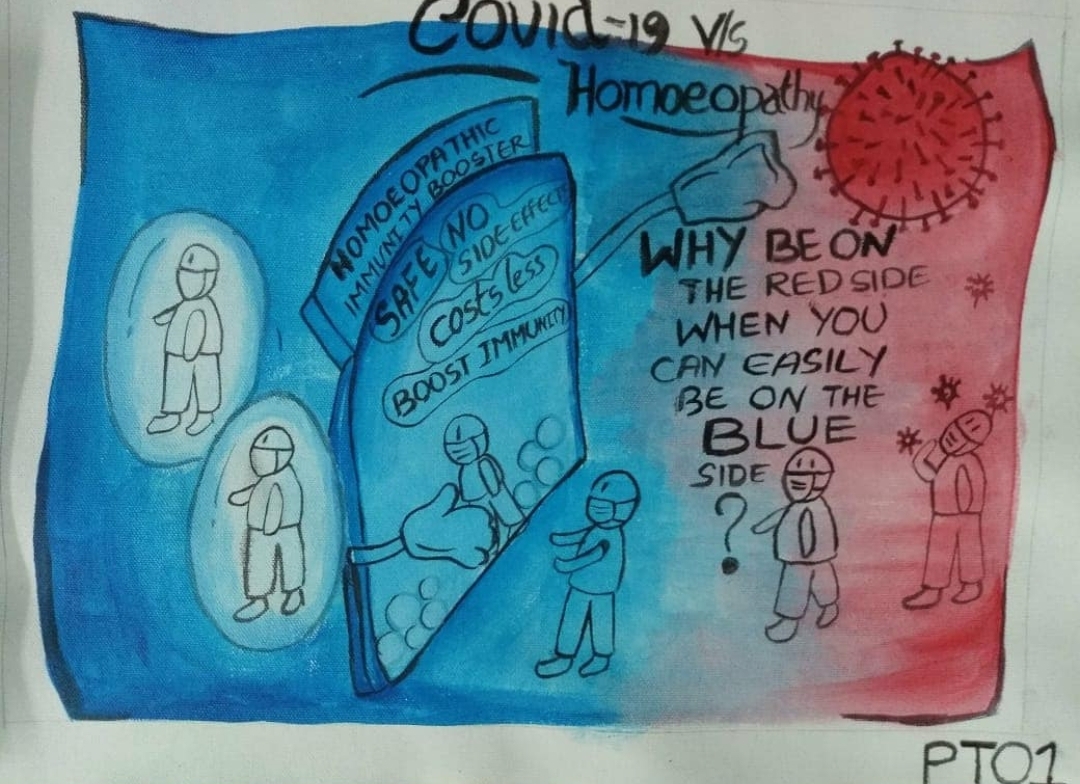 Covid-19 v/s
Homoeopathy
HOMOEOPATHIC
IMMUNITY BOOSTER
SAFE
NO
SIDE-EFFECTS
Costs less
BOOST IMMUNITY
WHY BE ON
THE RED SIDE
WHEN YOU
CAN EASILY
BE ON THE
BLUE
SIDE
?
PT01